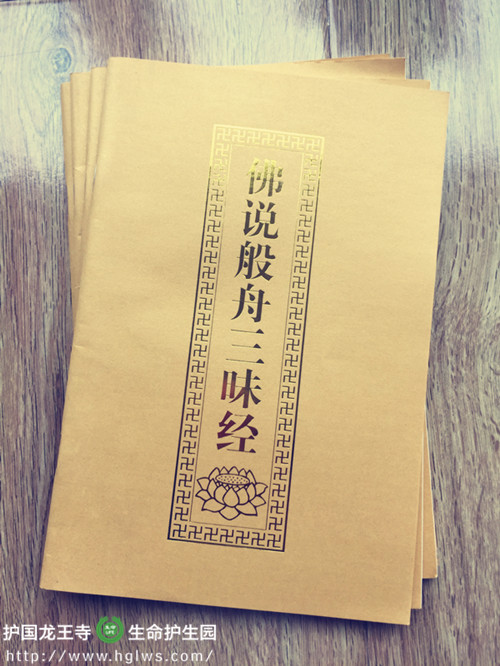 佛说般舟三昧经
护国龙王寺 生命护生园
http://www.hglws.com/